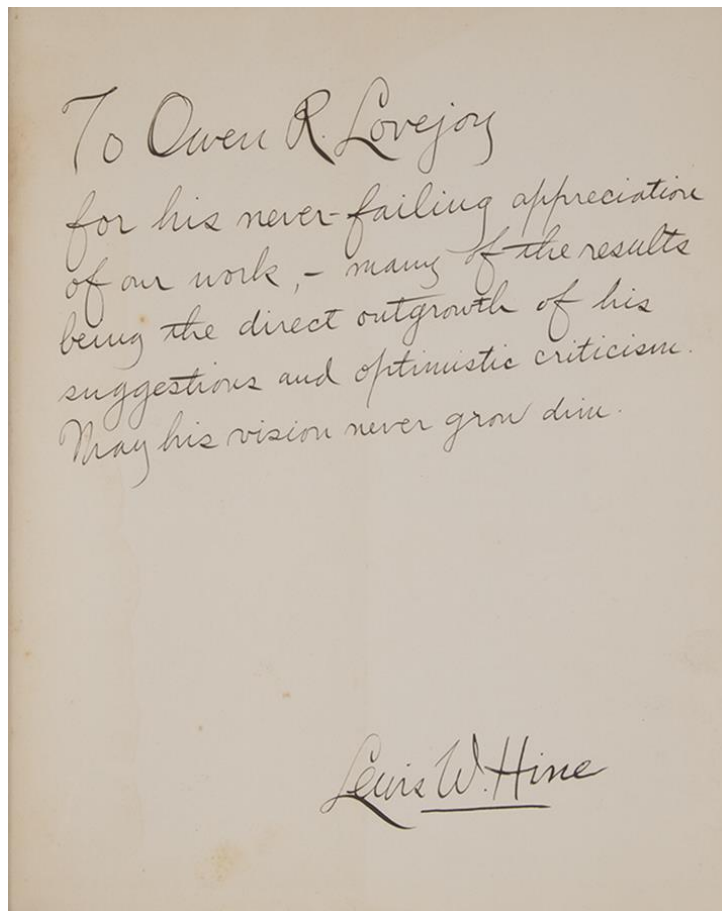 To Owen R. Lovejoy
for his never-failing appreciation
of our work, - many of the results
being the direct outgrowth of his
suggestions and optimistic criticism.
May his vision never grow dim.
Lewis W. Hine